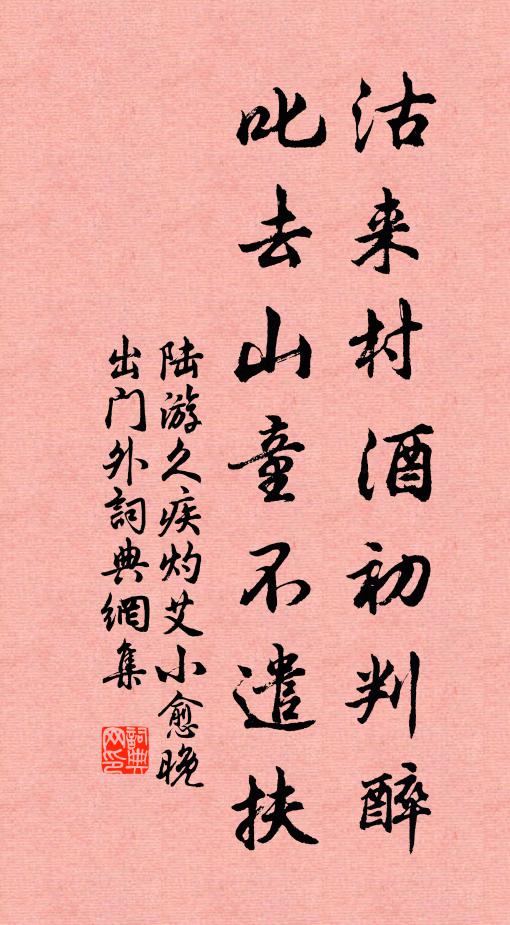 沽来村酒初判醉
叱去山童不遣扶
陆游久疾灼艾小愈晚
出门外詞典網集
詞典网印